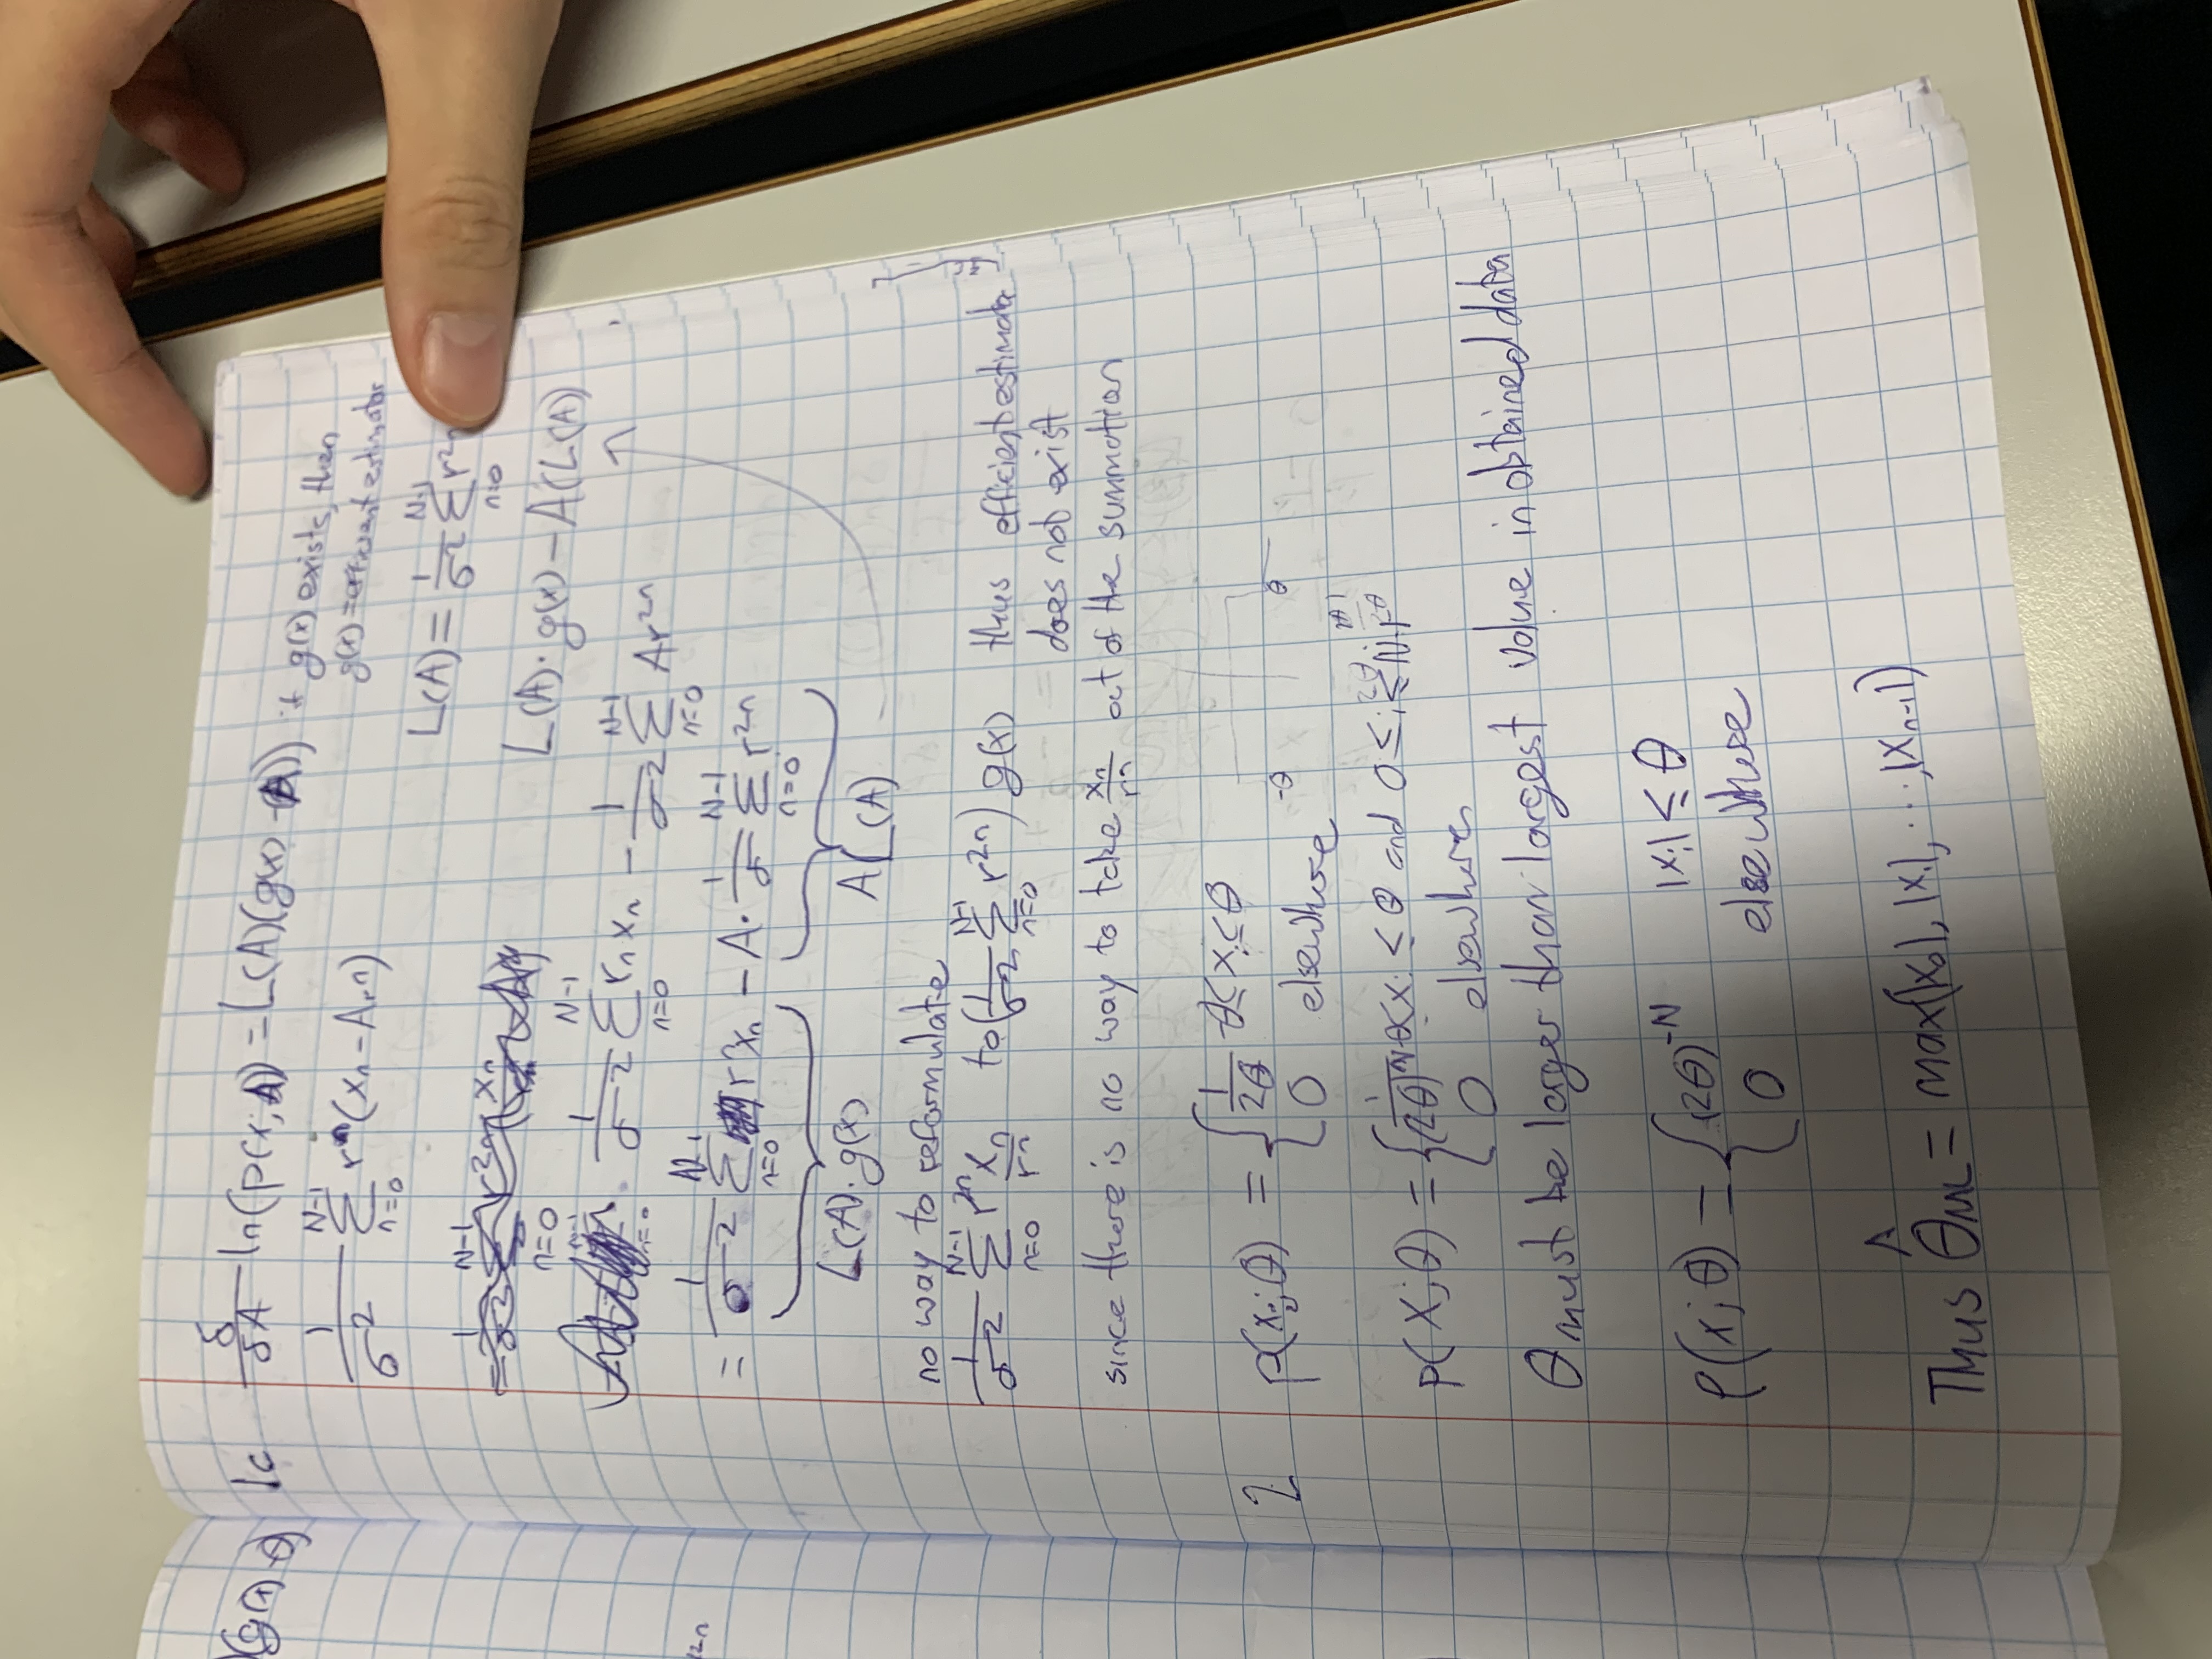 (g(x)-θ)
1c δ/δA ln(p(x;A)) = L(A)(g(x) - A)) if g(x) exists, then
g(x) = efficient estimator
1/σ² Σ_{n=0}^{N-1} rⁿ(xn - Arn)
L(A) = 1/σ² Σ_{n=0}^{N-1} r²ⁿ
L(A) · g(x) - A(L(A))
1/σ² Σ_{n=0}^{N-1} rn xn - 1/σ² Σ_{n=0}^{N-1} Ar²ⁿ
= 1/σ² Σ_{n=0}^{N-1} rⁿxn - A · 1/σ Σ_{n=0}^{N-1} r²ⁿ
L(A) · g(x) A L(A)
no way to reformulate
1/σ² Σ_{n=0}^{N-1} r²ⁿ xn/rⁿ to (1/σ² Σ_{n=0}^{N-1} r²ⁿ) g(x) thus efficient estimator
does not exist
since there is no way to take xn/rⁿ out of the summation
2 p(xi;θ) = { 1/2θ -θ≤xi≤θ
0 elsewhere
-θ θ
p(X;θ) = { 1/(2θ)^N -θ<xi ≤ θ and 0 ≤ i ≤ N-1
0 elsewhere
θ must be larger than largest value in obtained data
p(x;θ) = { (2θ)^-N |xi| ≤ θ
0 elsewhere
Thus θ̂ML = max(|x0|, |x1|, ..., |xn-1|)